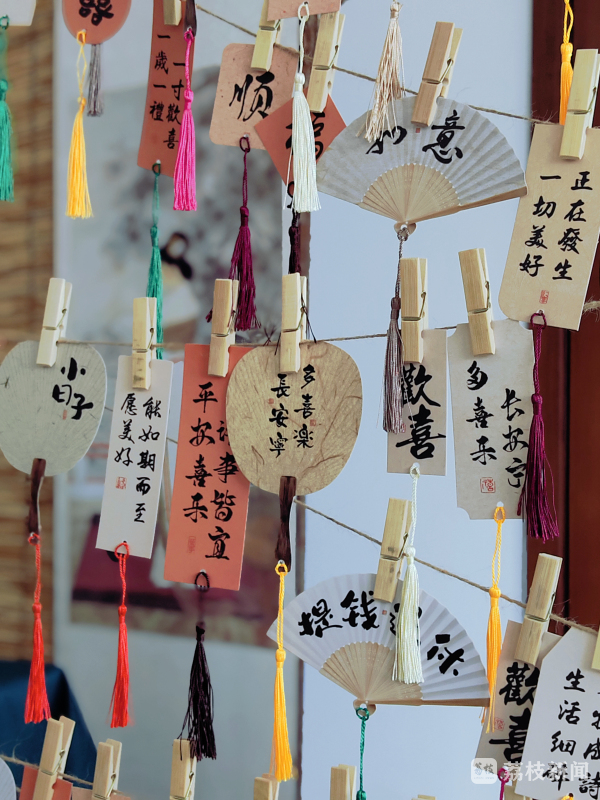 囍
一歲一禮
一寸歡喜
順
福
如意
一切美好
正在發生
小日子
愿美好
能如期而至
平安喜乐
事皆宜
多喜樂
長安寧
歡喜
多喜乐
长安宁
歡
生活细
荔枝新闻